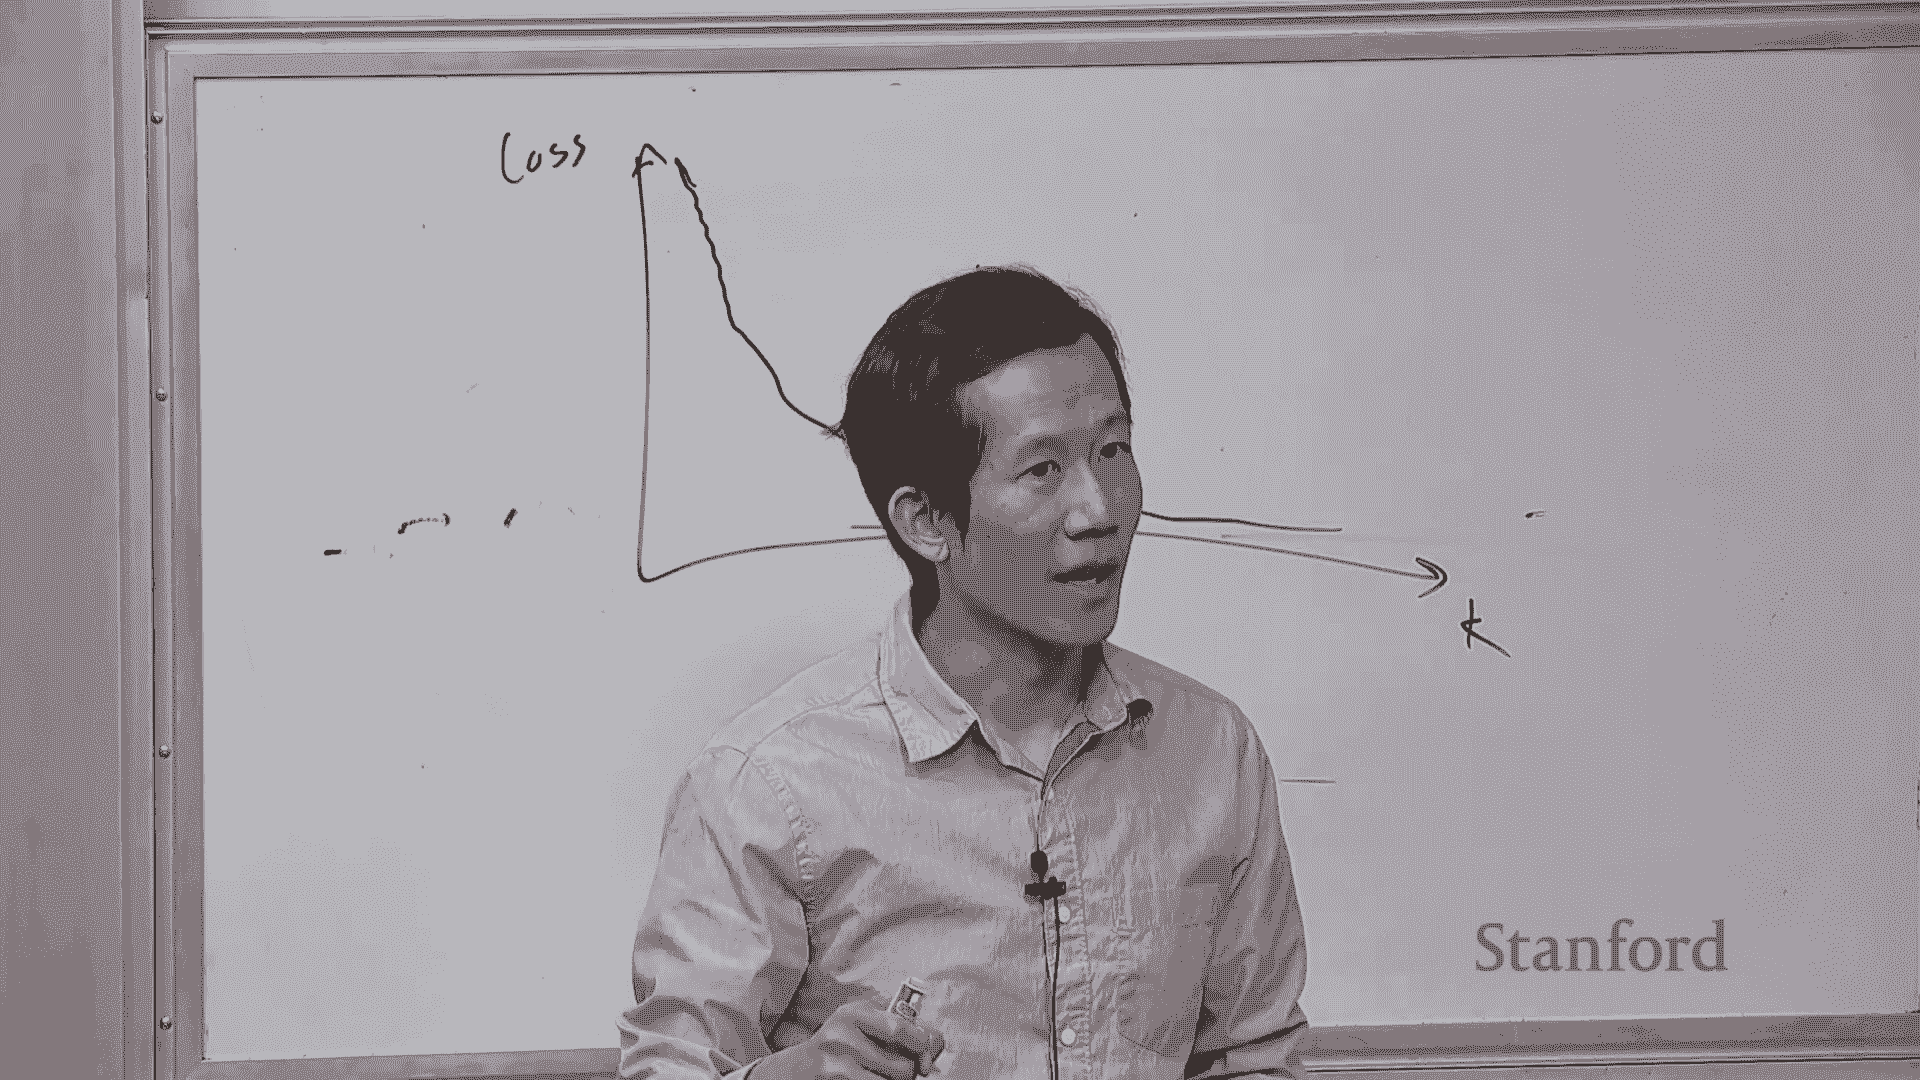 Loss
k
Stanford